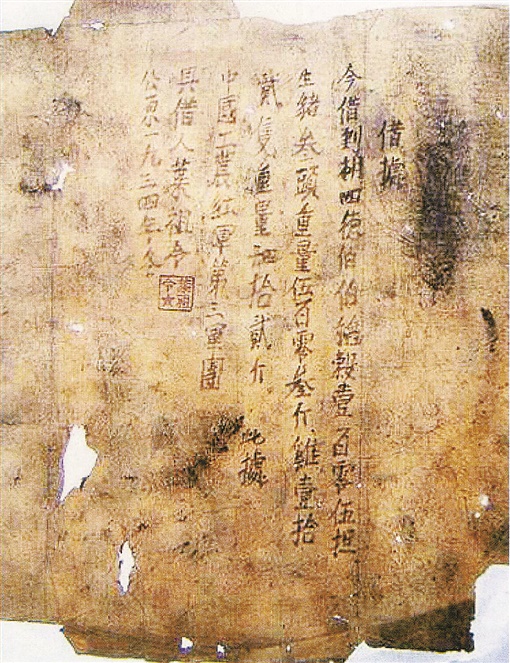 借據
今借到胡四德伯伯稻穀壹百零伍担
生豬叁頭重量伍百零叁斤、雞壹拾
貳隻重量肆拾貳斤。此據
中國工農紅軍第三軍團
具借人葉祖令
公原一九三四年
葉祖令